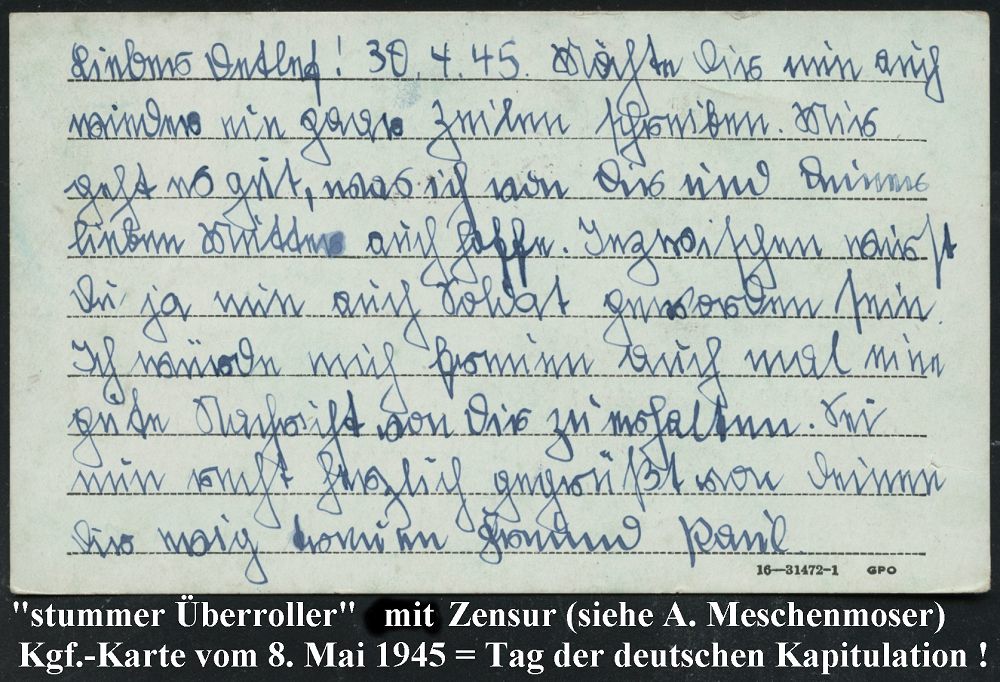 Lieber Detlef! 30.4.45. Möchte Dir nun auch
wieder ein paar Zeilen schreiben. Mir
geht es gut, was ich von Dir und Deiner
lieben Mutter auch hoffe. Inzwischen wirst
Du ja nun auch Soldat geworden sein.
Ich würde mich freuen auch mal eine
gute Nachricht von Dir zu erhalten. Sei
nun recht herzlich gegrüßt von Deinen
Dir ewig treuen Freund Paul.
16—31472-1 GPO
"stummer Überroller" mit Zensur (siehe A. Meschenmoser)
Kgf.-Karte vom 8. Mai 1945 = Tag der deutschen Kapitulation !